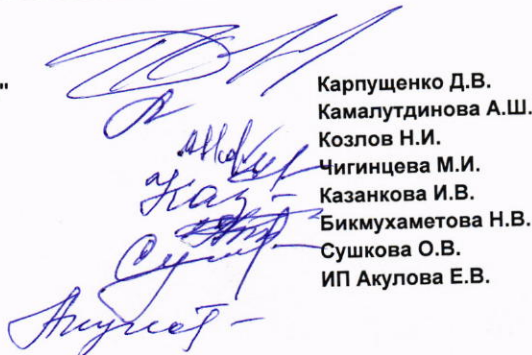 "
Карпущенко Д.В.
Камалутдинова А.Ш.
Козлов Н.И.
Чигинцева М.И.
Казанкова И.В.
Бикмухаметова Н.В.
Сушкова О.В.
ИП Акулова Е.В.